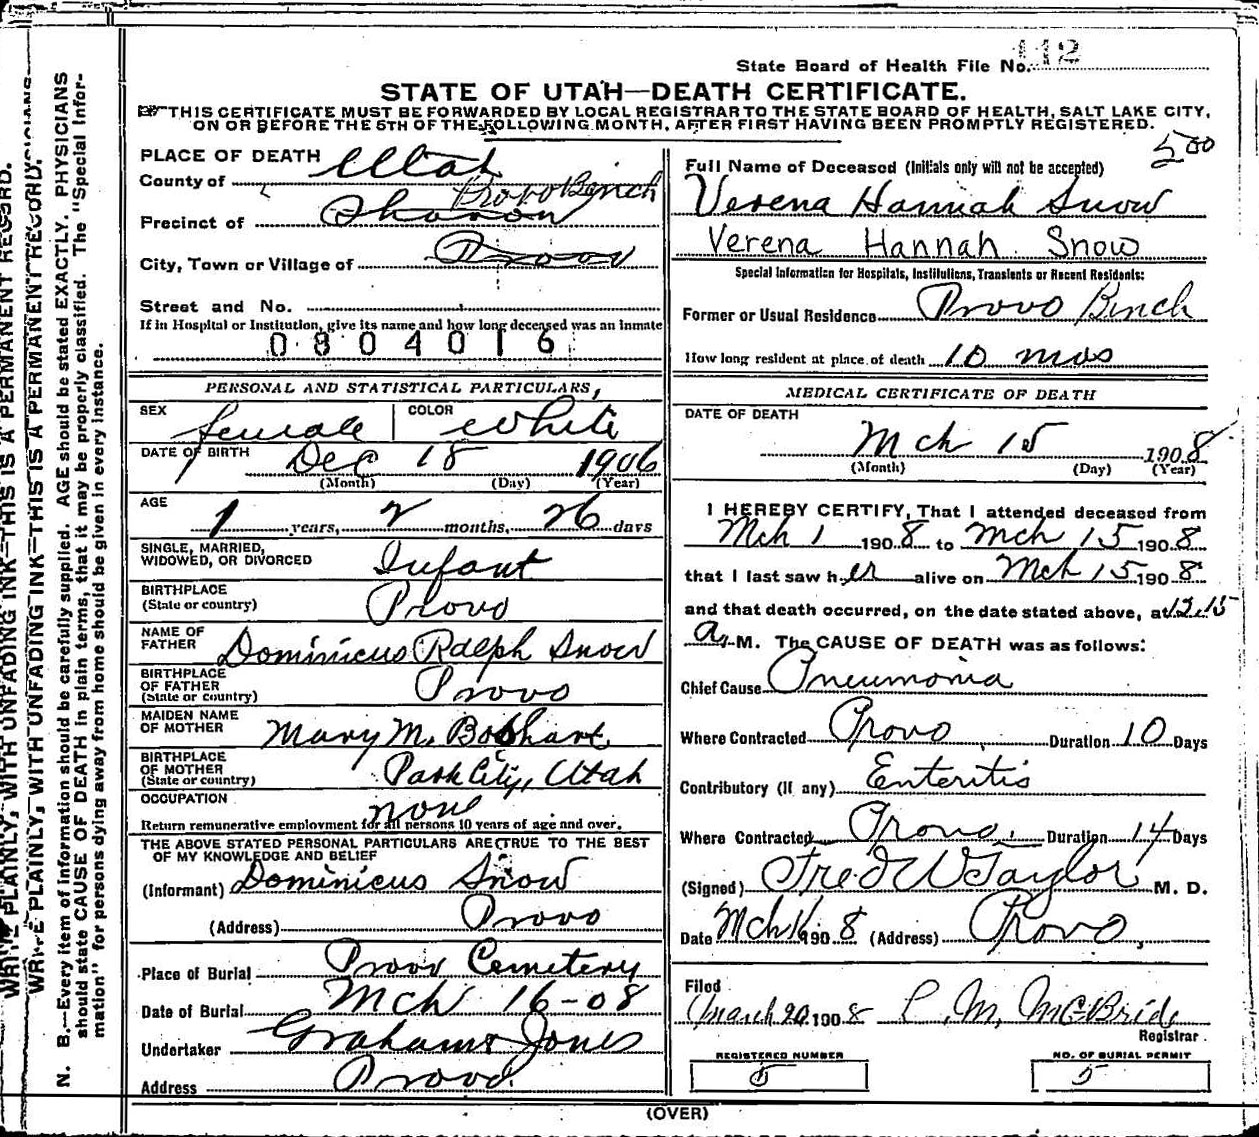 State Board of Health File No. 112
STATE OF UTAH—DEATH CERTIFICATE.
THIS CERTIFICATE MUST BE FORWARDED BY LOCAL REGISTRAR TO THE STATE BOARD OF HEALTH, SALT LAKE CITY,
ON OR BEFORE THE 5TH OF THE FOLLOWING MONTH, AFTER FIRST HAVING BEEN PROMPTLY REGISTERED.
500
PLACE OF DEATH
County of Utah
Provo Bench
Precinct of Sharon
City, Town or Village of Provo
Street and No.
If in Hospital or Institution, give its name and how long deceased was an inmate
0804016
PERSONAL AND STATISTICAL PARTICULARS,
SEX female COLOR White
DATE OF BIRTH Dec 18 1906
(Month) (Day) (Year)
AGE 1 years, 2 months, 26 days
SINGLE, MARRIED,
WIDOWED, OR DIVORCED Infant
BIRTHPLACE
(State or country) Provo
NAME OF
FATHER Dominicus Ralph Snow
BIRTHPLACE
OF FATHER
(State or country) Provo
MAIDEN NAME
OF MOTHER Mary M. Boshart
BIRTHPLACE
OF MOTHER
(State or country) Park City, Utah
OCCUPATION none
Return remunerative employment for all persons 10 years of age and over.
THE ABOVE STATED PERSONAL PARTICULARS ARE TRUE TO THE BEST
OF MY KNOWLEDGE AND BELIEF
(Informant) Dominicus Snow
(Address) Provo
Place of Burial Provo Cemetery
Date of Burial Mch 16-08
Undertaker Graham & Jones
Address Provo
Full Name of Deceased (Initials only will not be accepted)
Verena Hannah Snow
Verena Hannah Snow
Special Information for Hospitals, Institutions, Transients or Recent Residents:
Former or Usual Residence Provo Binch
How long resident at place of death 10 mos
MEDICAL CERTIFICATE OF DEATH
DATE OF DEATH
Mch 15 1908
(Month) (Day) (Year)
I HEREBY CERTIFY, That I attended deceased from
Mch 1 1908 to Mch 15 1908
that I last saw her alive on Mch 15 1908
and that death occurred, on the date stated above, at 12.15
A. M. The CAUSE OF DEATH was as follows:
Chief Cause Pneumonia
Where Contracted Provo Duration 10 Days
Contributory (If any) Enteritis
Where Contracted Provo, Duration 14 Days
(Signed) Fred W Taylor M. D.
Date Mch 16 1908 (Address) Provo,
Filed
March 20 1908 P. M. McBride
Registrar
REGISTERED NUMBER
5
NO. OF BURIAL PERMIT
5
(OVER)
WRITE PLAINLY, WITH UNFADING INK—THIS IS A PERMANENT RECORD.
N. B.—Every item of information should be carefully supplied. AGE should be stated EXACTLY. PHYSICIANS
should state CAUSE OF DEATH in plain terms, that it may be properly classified. The "Special Infor-
mation" for persons dying away from home should be given in every instance.